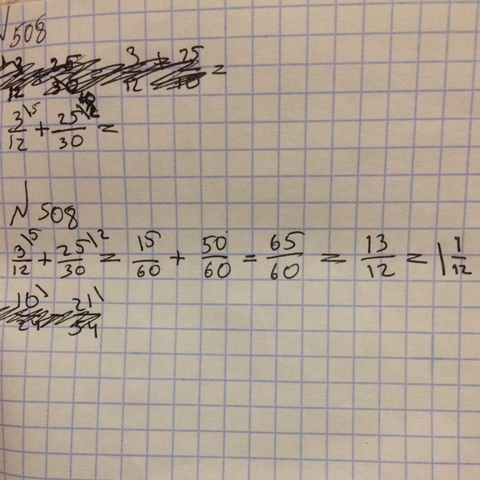 № 508
3/12 \5 + 25/30 \2 =
№ 508
3/12 \5 + 25/30 \2 = 15/60 + 50/60 = 65/60 = 13/12 = 1 1/12